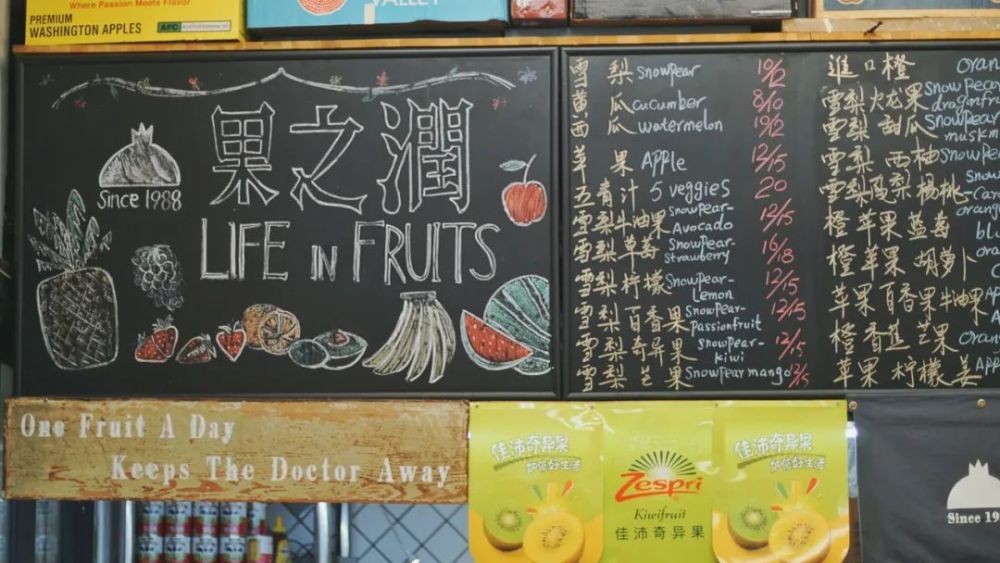 Where Passion Meets Flavor
PREMIUM
WASHINGTON APPLES
AFC
VALLEY
果之潤
Since 1988
LIFE IN FRUITS
雪梨 Snowpear 10/12
黄瓜 cucumber 8/10
西瓜 watermelon 10/12
苹果 Apple 12/15
五青汁 5 veggies 20
雪梨牛油果 Snowpear-Avocado 12/15
雪梨草莓 Snowpear-Strawberry 16/18
雪梨柠檬 Snowpear-Lemon 12/15
雪梨百香果 Snowpear-Passionfruit 12/15
雪梨奇异果 Snowpear-kiwi 12/15
雪梨芒果 Snowpear mango 12/15
進口橙 oran
雪梨火龙果 Snowpear dragonfru
雪梨甜瓜 Snowpear muskm
雪梨西柚 Snowpe
雪梨凤梨杨桃 Snow
橙苹果蓝莓 orang blu
橙苹果胡萝卜 ora
苹果百香果牛油果 App
橙香蕉芒果 Oran
苹果柠檬姜 App
One Fruit A Day
Keeps The Doctor Away
佳沛奇异果
加倍好生活
Zespri
Kiwifruit
佳沛奇异果
佳沛奇异果
加倍好生活
Since 19